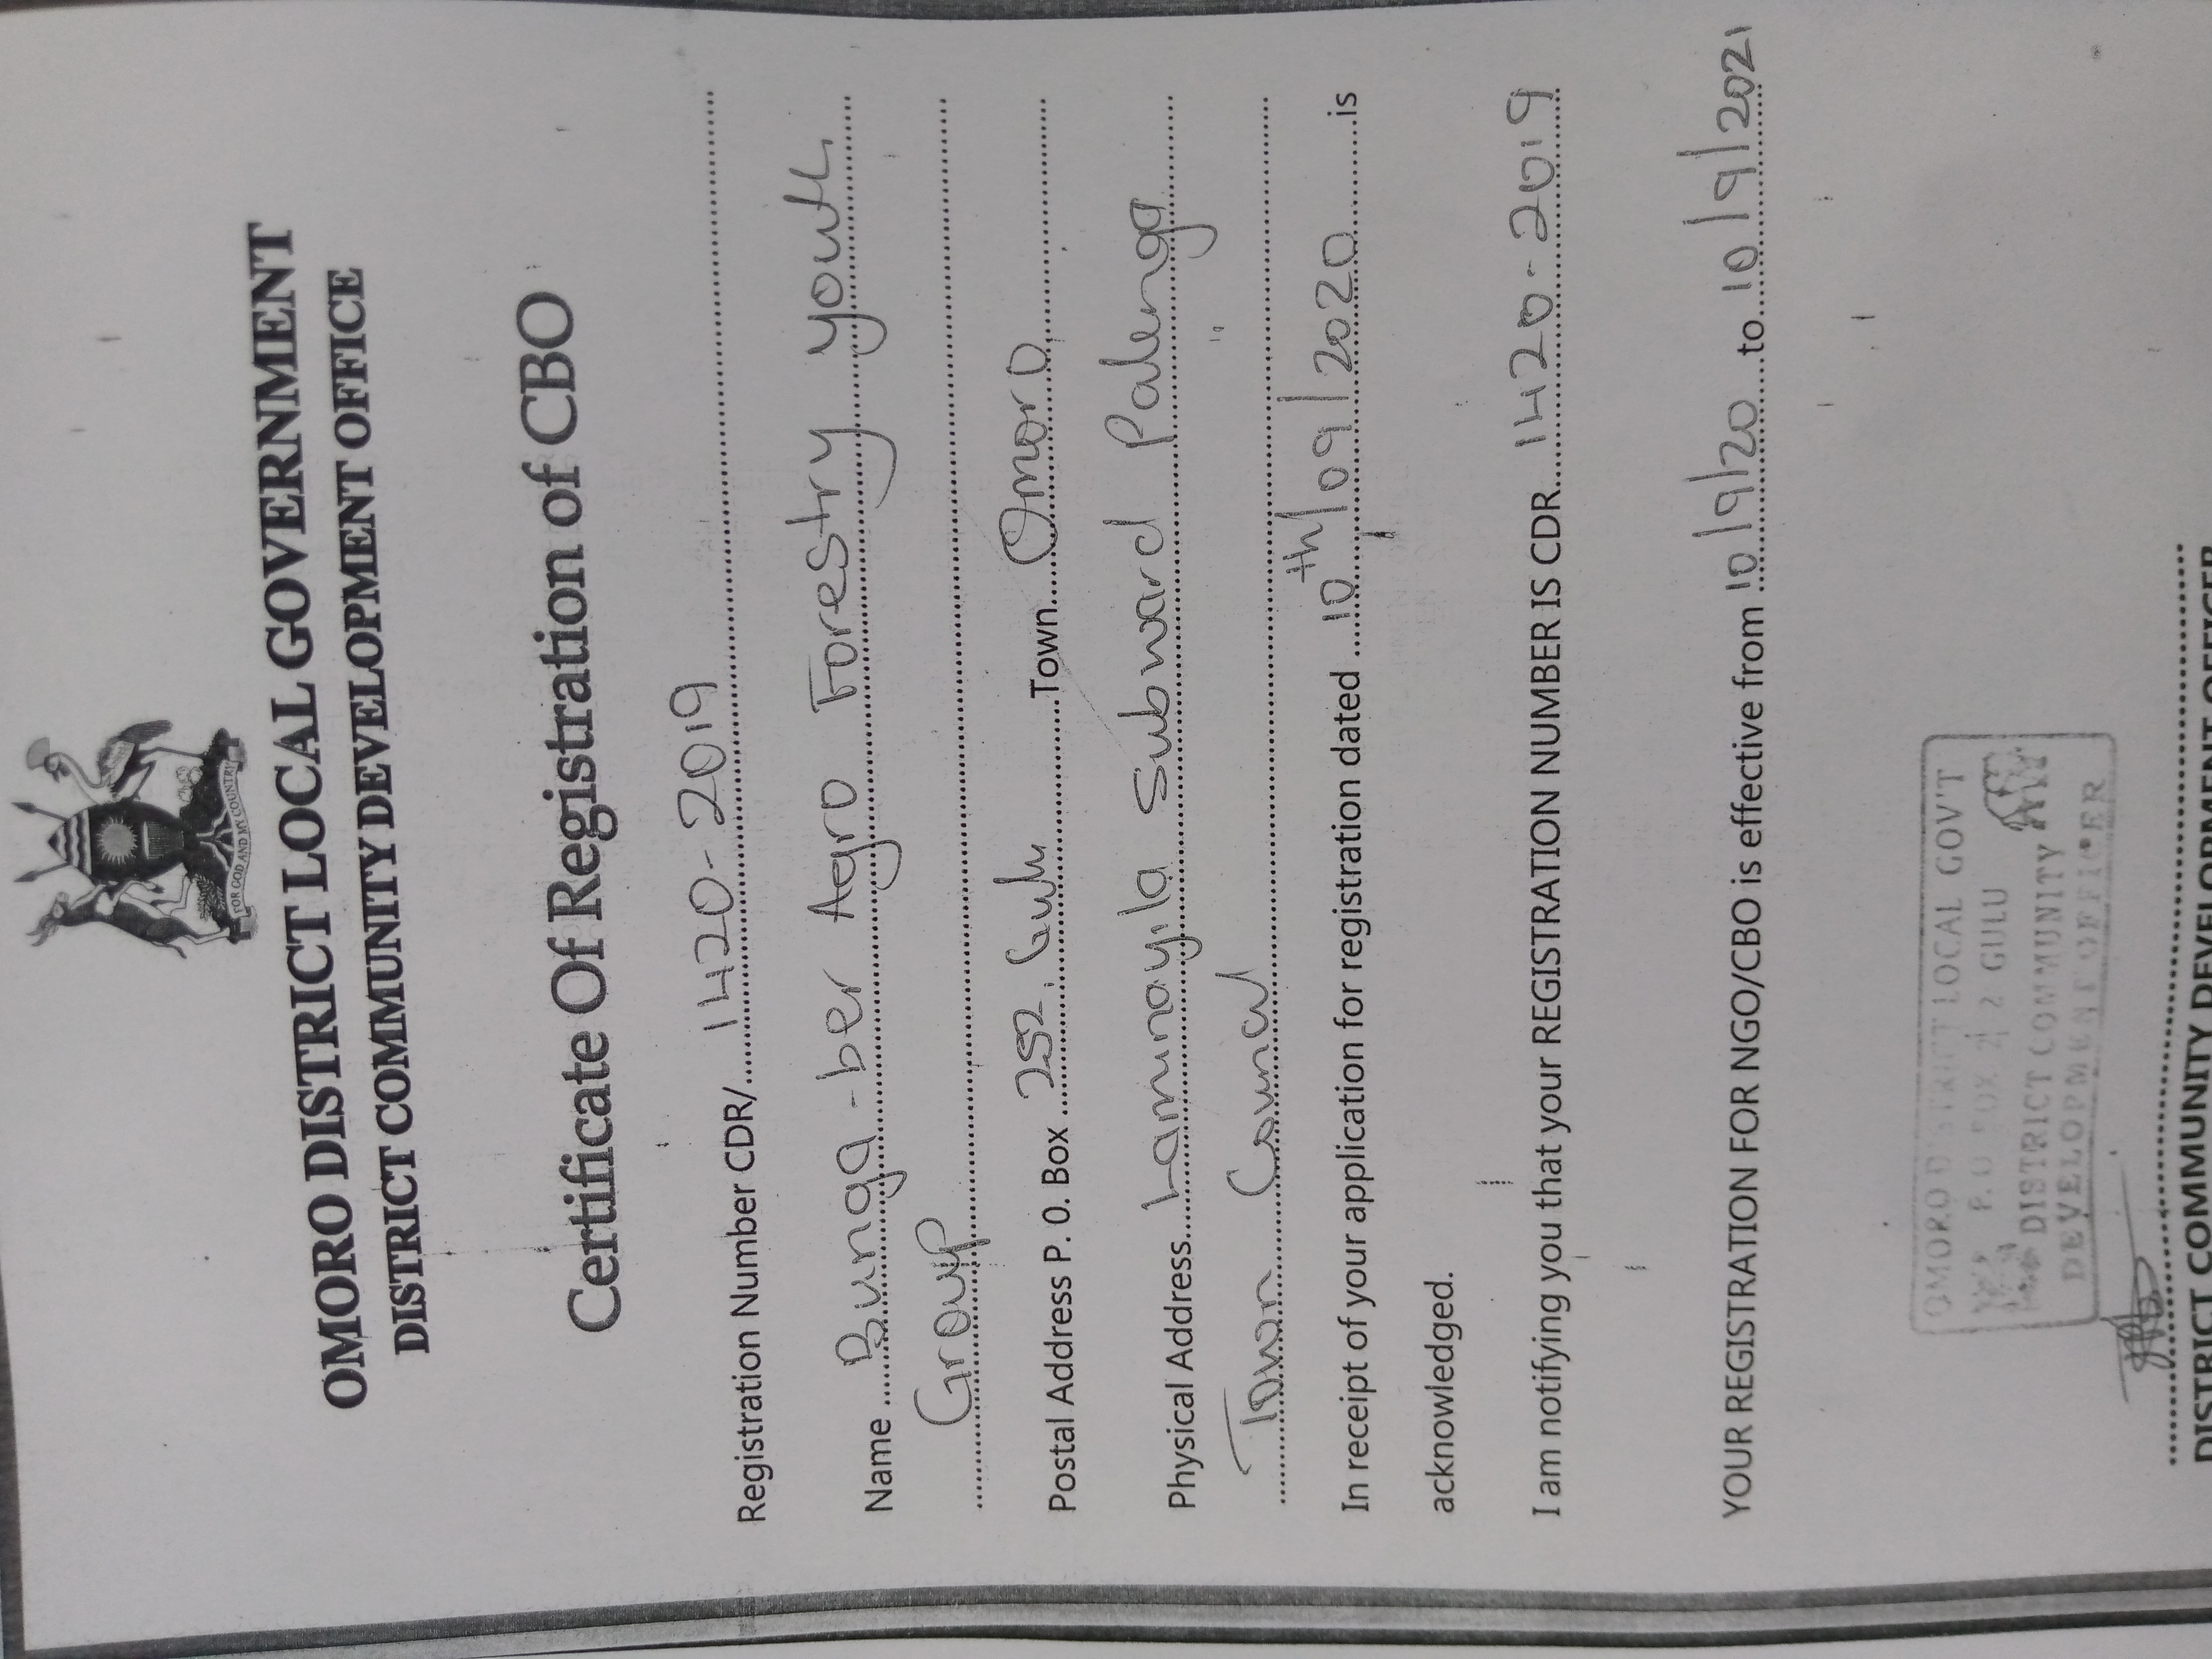 FOR GOD AND MY COUNTRY
OMORO DISTRICT LOCAL GOVERNMENT
DISTRICT COMMUNITY DEVELOPMENT OFFICE
Certificate Of Registration of CBO
Registration Number CDR/.....1420-2019
Name ..... Bunga-ber Agro Forestry youth
Group
Postal Address P. O. Box ..... 252, Gulu ..... Town..... Omoro
Physical Address..... Laminayila Subward Palenga
Town Council
In receipt of your application for registration dated ..... 10th/09/2020 .....is
acknowledged.
I am notifying you that your REGISTRATION NUMBER IS CDR.....1420-2019
YOUR REGISTRATION FOR NGO/CBO is effective from 10/9/20 .....to..... 10/9/2021
OMORO DISTRICT LOCAL GOV'T
P.O BOX GULU
DISTRICT COMMUNITY
DEVELOPMENT OFFICER
DISTRICT COMMUNITY DEVELOPMENT OFFICER